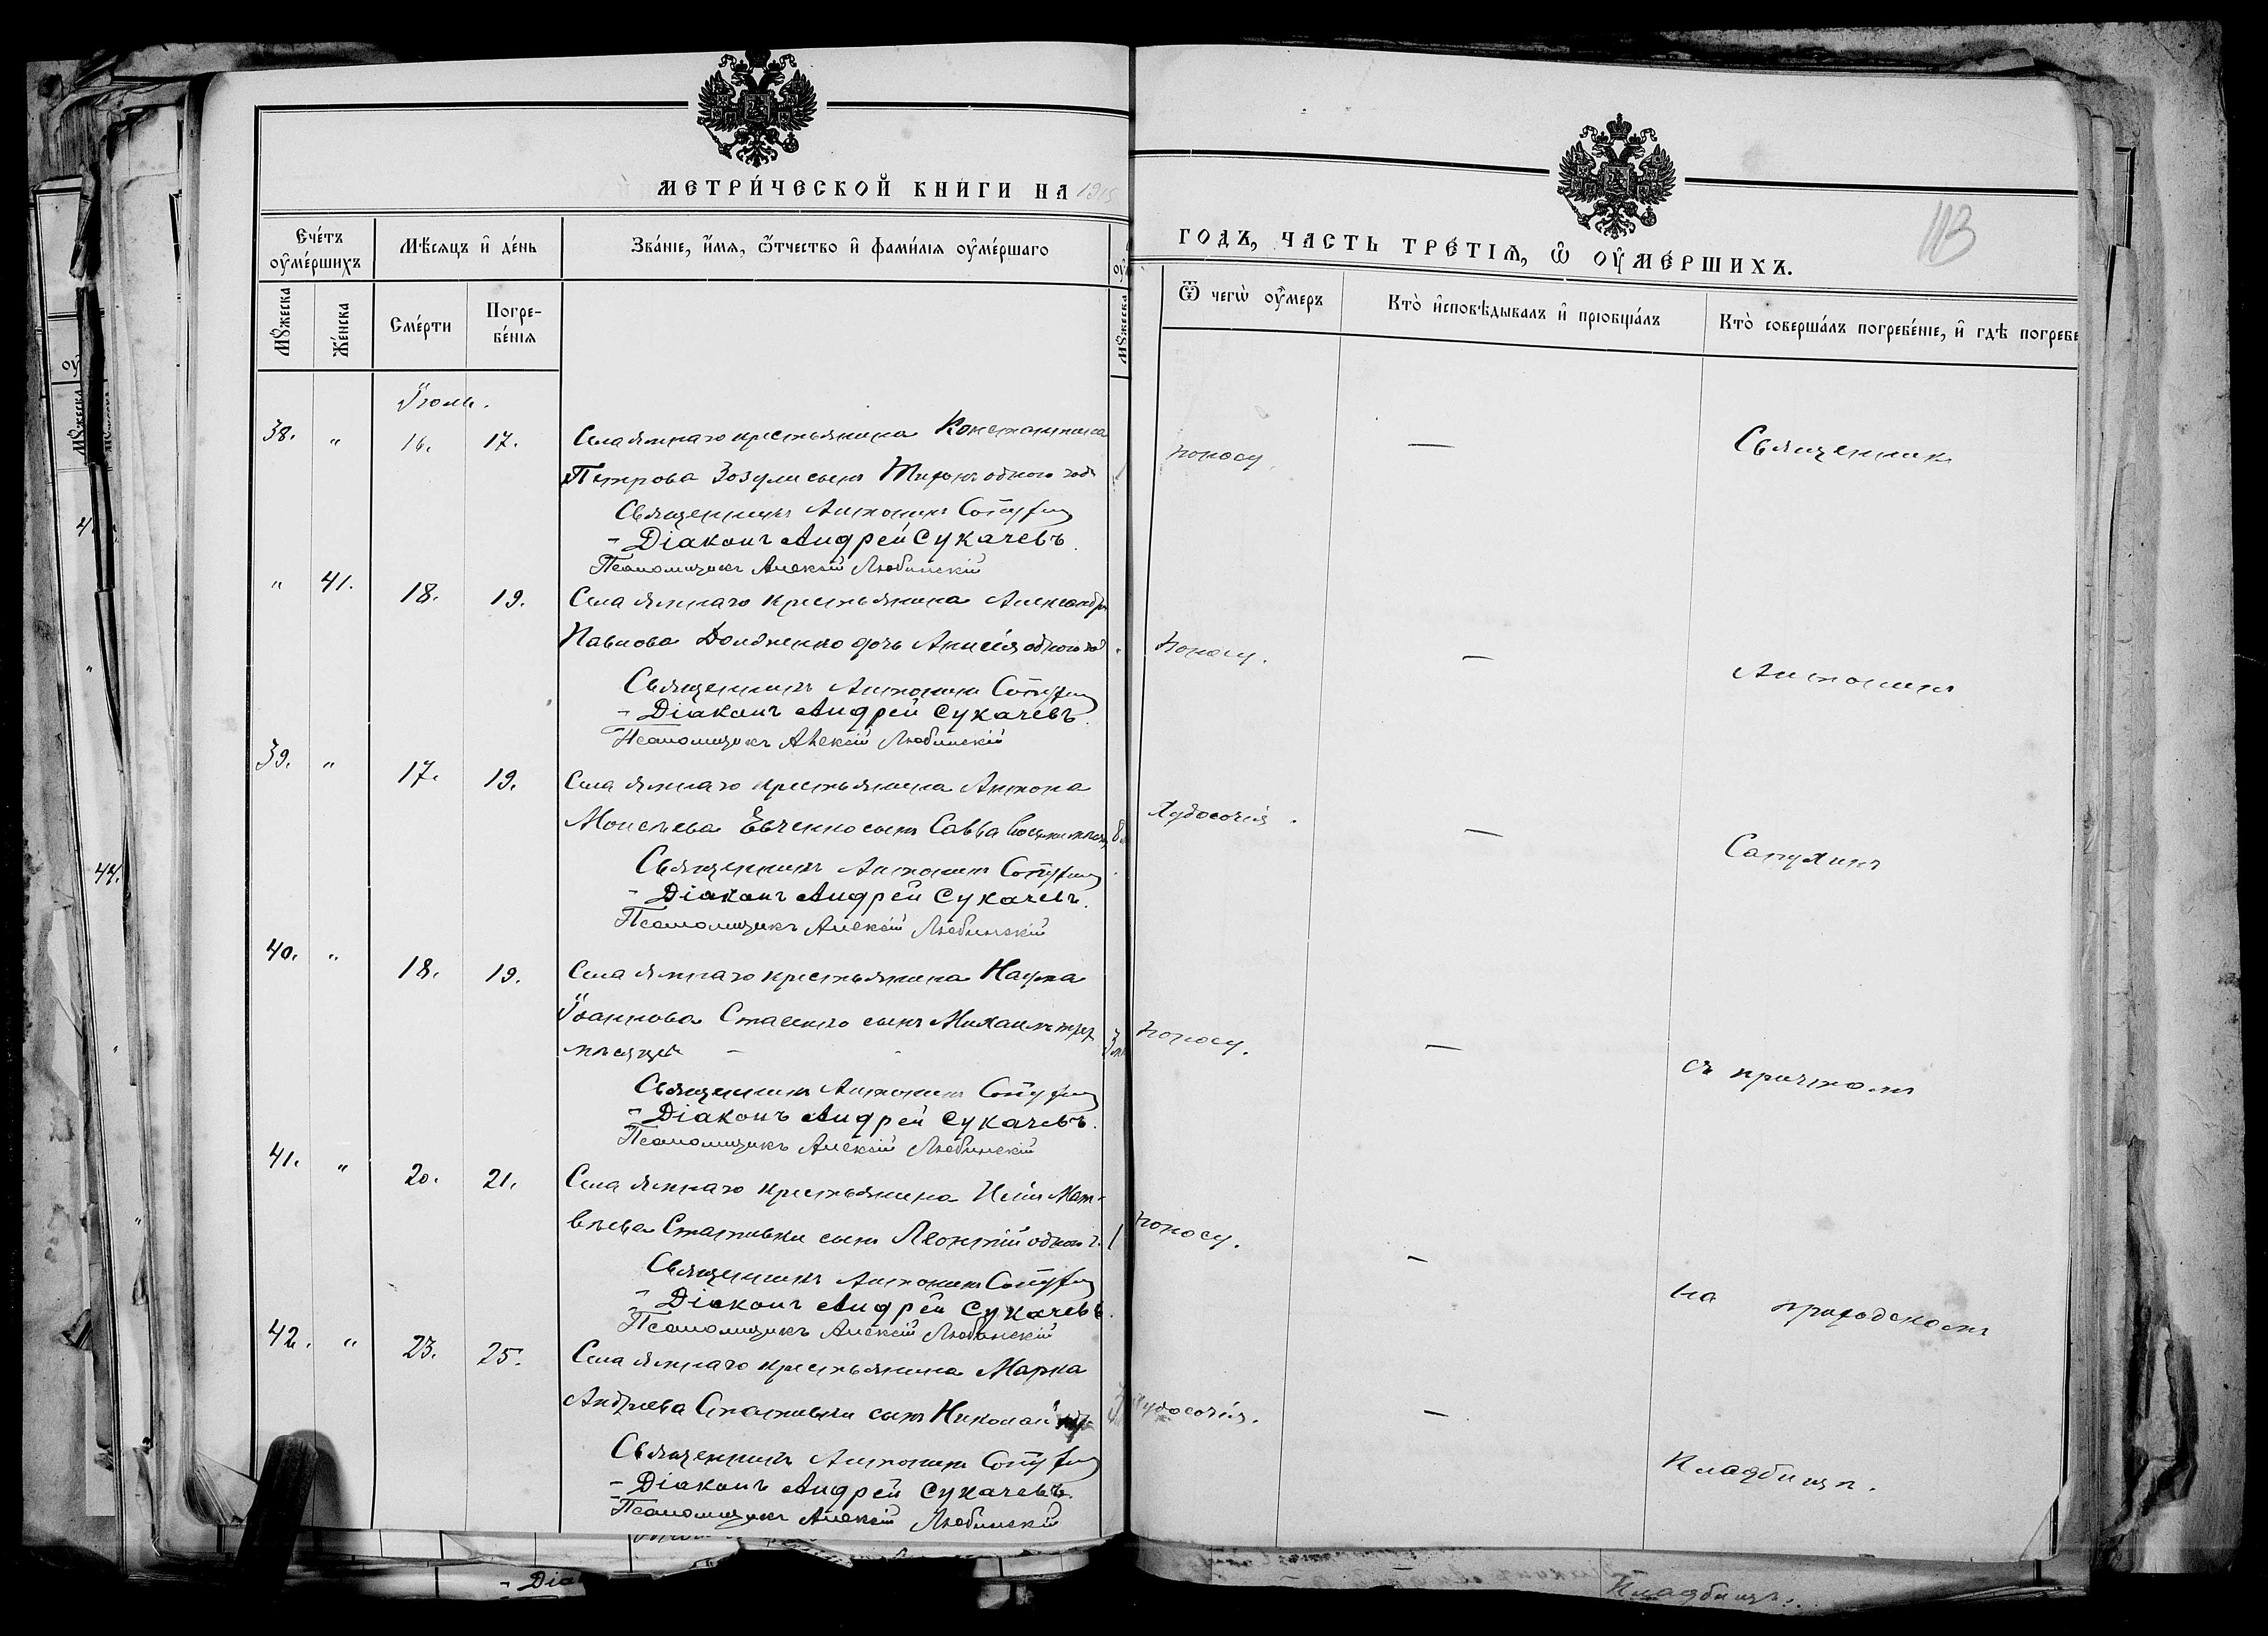 МЕТРИ́ЧЕСКОЙ КНИ́ГИ НА 1915
ГОДЪ, ЧАСТЬ ТРЕ́ТІѦ, Ѡ҆ ОУ҆МЕ́РШИХЪ.
113
Сче́тъ оу҆ме́ршихъ
Мѣ́сяцъ и҆ де́нь
Зва́ніе, и҆́мя, ѻ҆́тчество и҆ фами́лія оу҆ме́ршаго
Ѿ чегѡ̀ оу҆́меръ
Кто̀ и҆сповѣ́дывалъ и҆ пріобща́лъ
Кто̀ соверша́лъ погребе́ніе, и҆ гдѣ̀ погребе
Мꙋ́жеска
Же́нска
Сме́рти
Погре-
бе́нія
Мꙋ́жеска
Іюль.
38. " 16. 17. Села Ямнаго крестьянина Константина
Петрова Зозули сынъ Тихонъ одного года 1
поносу
—
Священник
Священникъ Антонин
- Діаконъ Андрей Сукачевъ.
Псаломщикъ Алексій Любинскій
" 41. 18. 19. Села Ямнаго крестьянина Александра
Павлова Долженко дочь Анисія одного год
поносу.
—
Антонинъ
Священникъ Антонин
- Діаконъ Андрей Сукачевъ.
Псаломщикъ Алексій Любинскій
39. " 17. 19. Села Ямнаго крестьянина Антона
Моисеева Евченко сынъ Савва
Худосочія.
—
Сапухинъ
Священникъ Антонин
- Діаконъ Андрей Сукачевъ.
Псаломщикъ Алексій Любинскій
40. " 18. 19. Села Ямнаго крестьянина Наума
Іоаннова Стасенко сынъ Михаилъ трех
мѣсяцев
поносу.
—
съ причтомъ
Священникъ Антонин
- Діаконъ Андрей Сукачевъ.
Псаломщикъ Алексій Любинскій
41. " 20. 21. Села Ямнаго крестьянина Иліи Мат-
вѣева Стативки сынъ Леонтій одного г. 1
поносу.
—
на приходскомъ
Священникъ Антонин
- Діаконъ Андрей Сукачевъ.
Псаломщикъ Алексій Любинскій
42. " 23. 25. Села Ямнаго крестьянина Марка
Андреева Стативки сынъ Николай
худосочія.
—
Кладбищѣ.
Священникъ Антонин
- Діаконъ Андрей Сукачевъ.
Псаломщикъ Алексій Любинскій
Кладбищѣ.